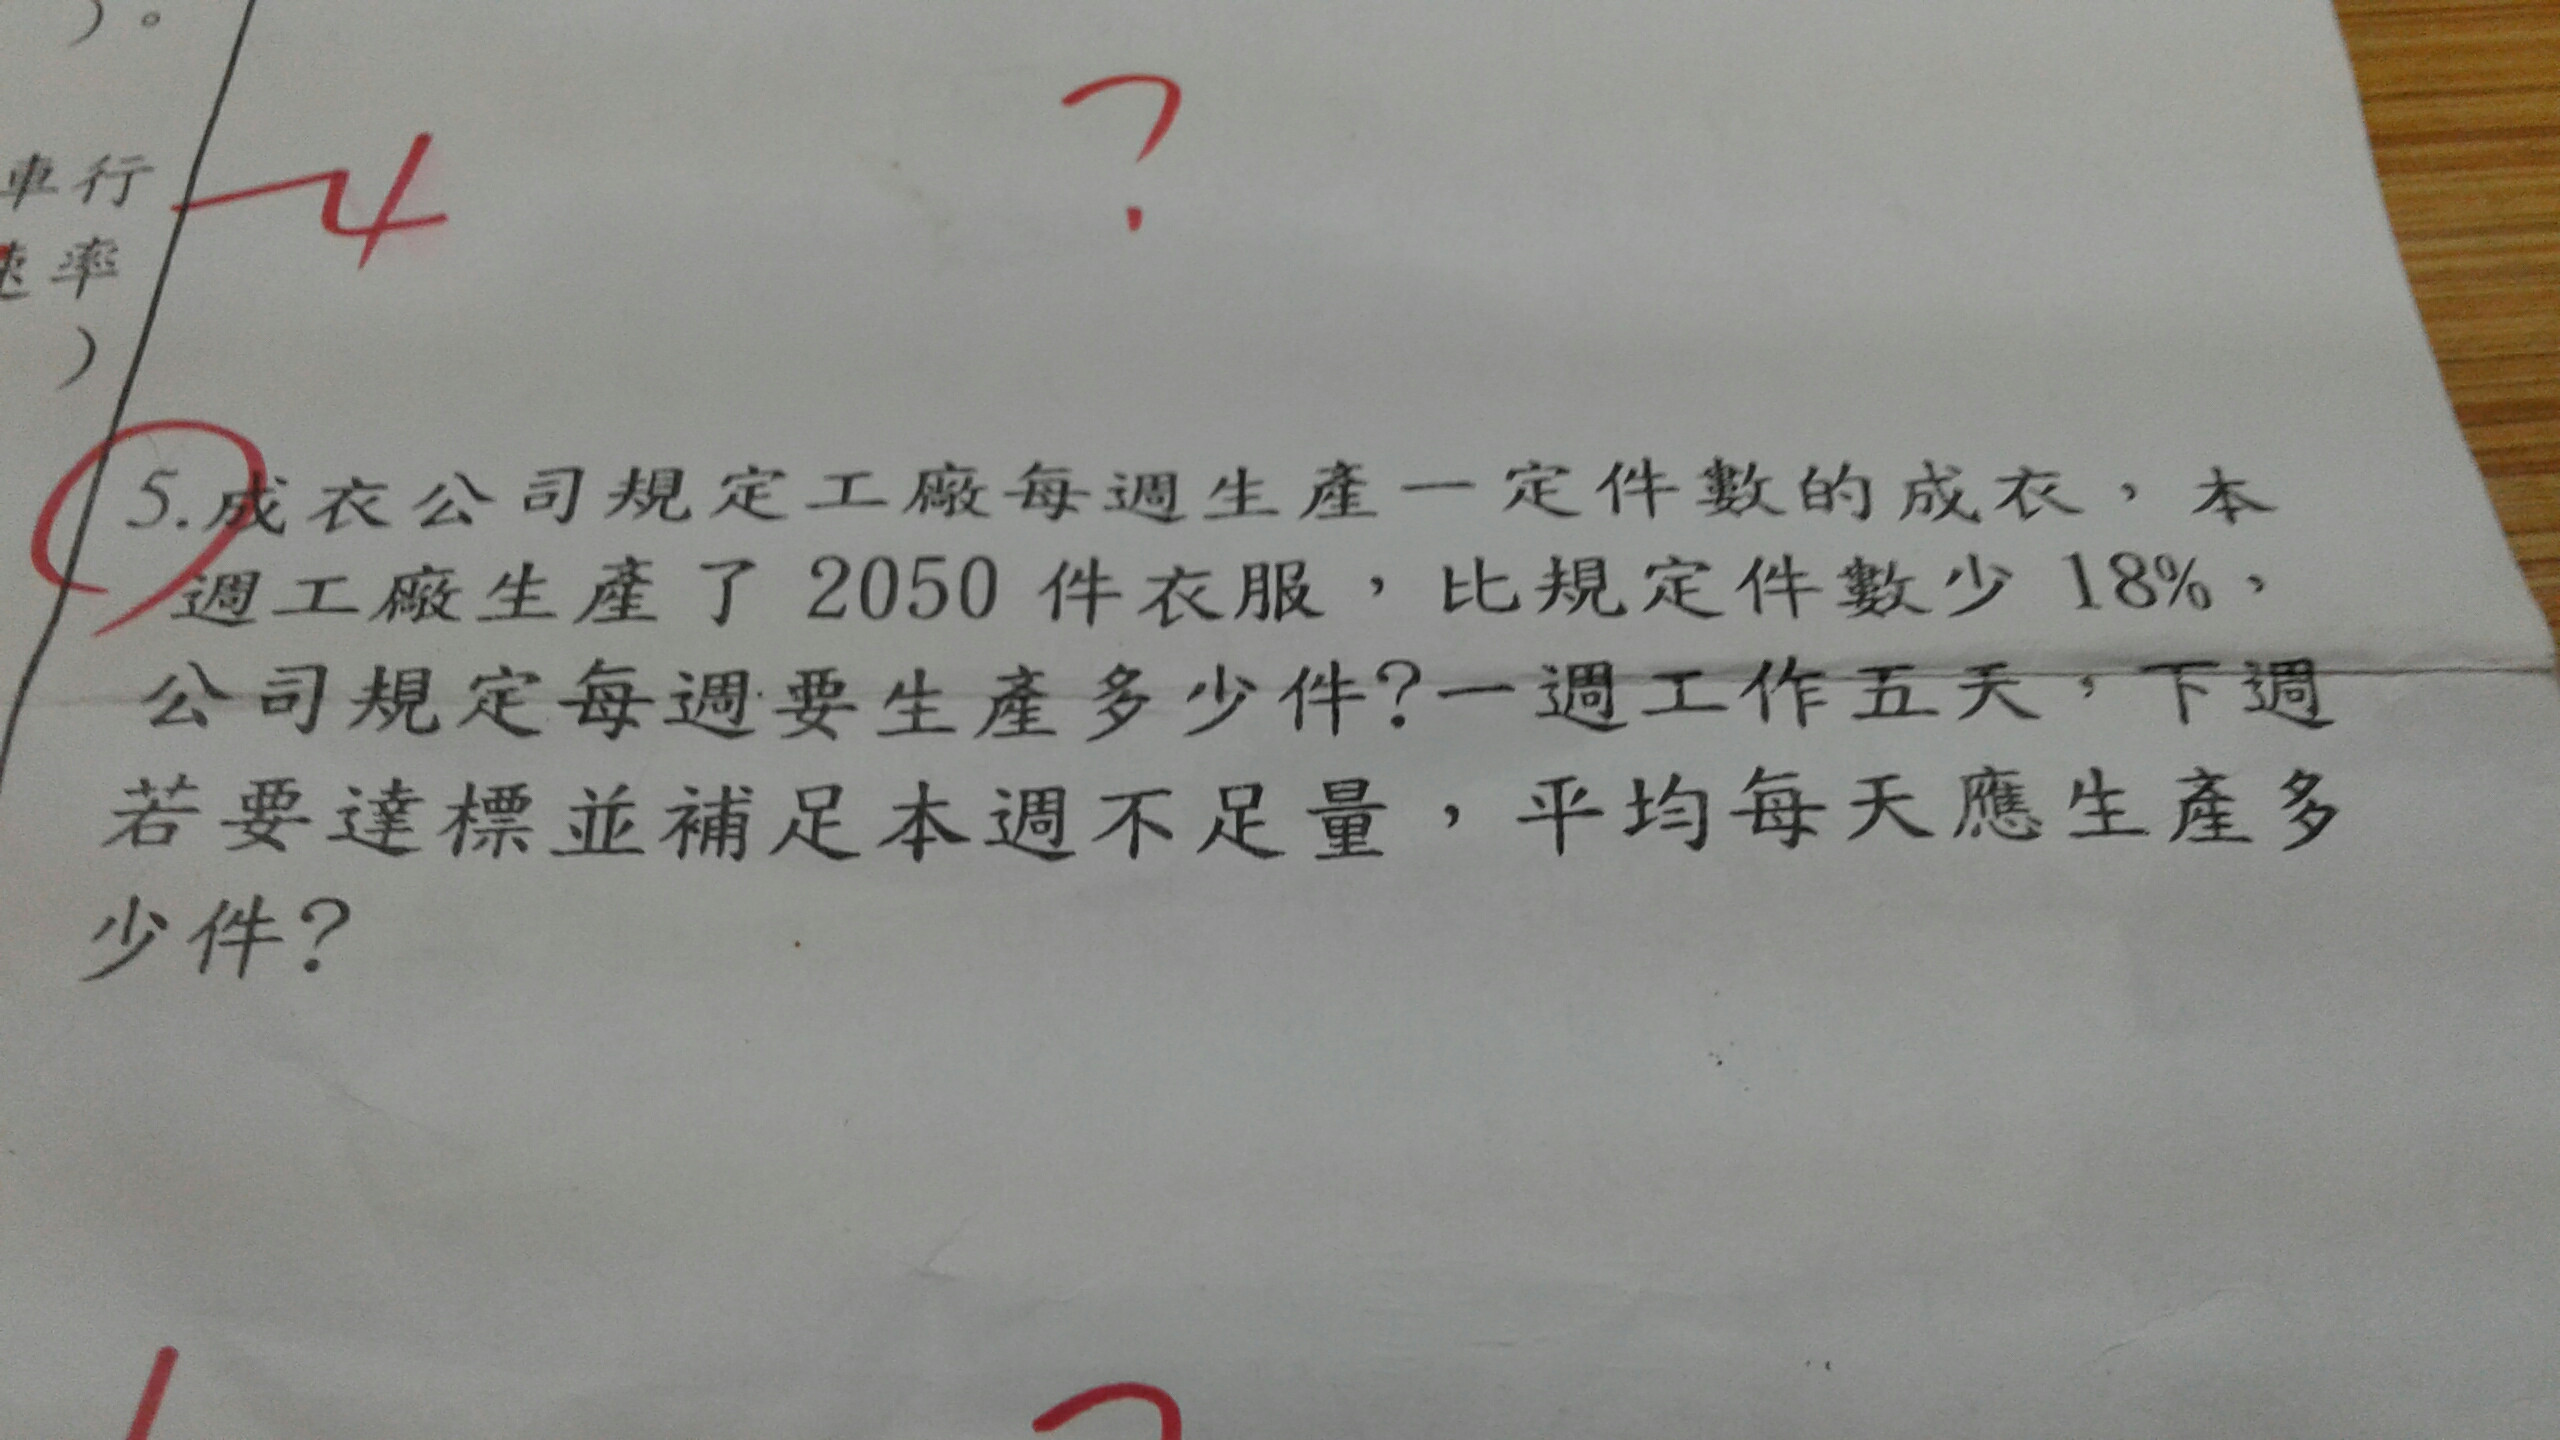 )。
車行
速率
)
-4
?
5.成衣公司規定工廠每週生產一定件數的成衣，本
週工廠生產了 2050 件衣服，比規定件數少 18%，
公司規定每週要生產多少件?一週工作五天，下週
若要達標並補足本週不足量，平均每天應生產多
少件?